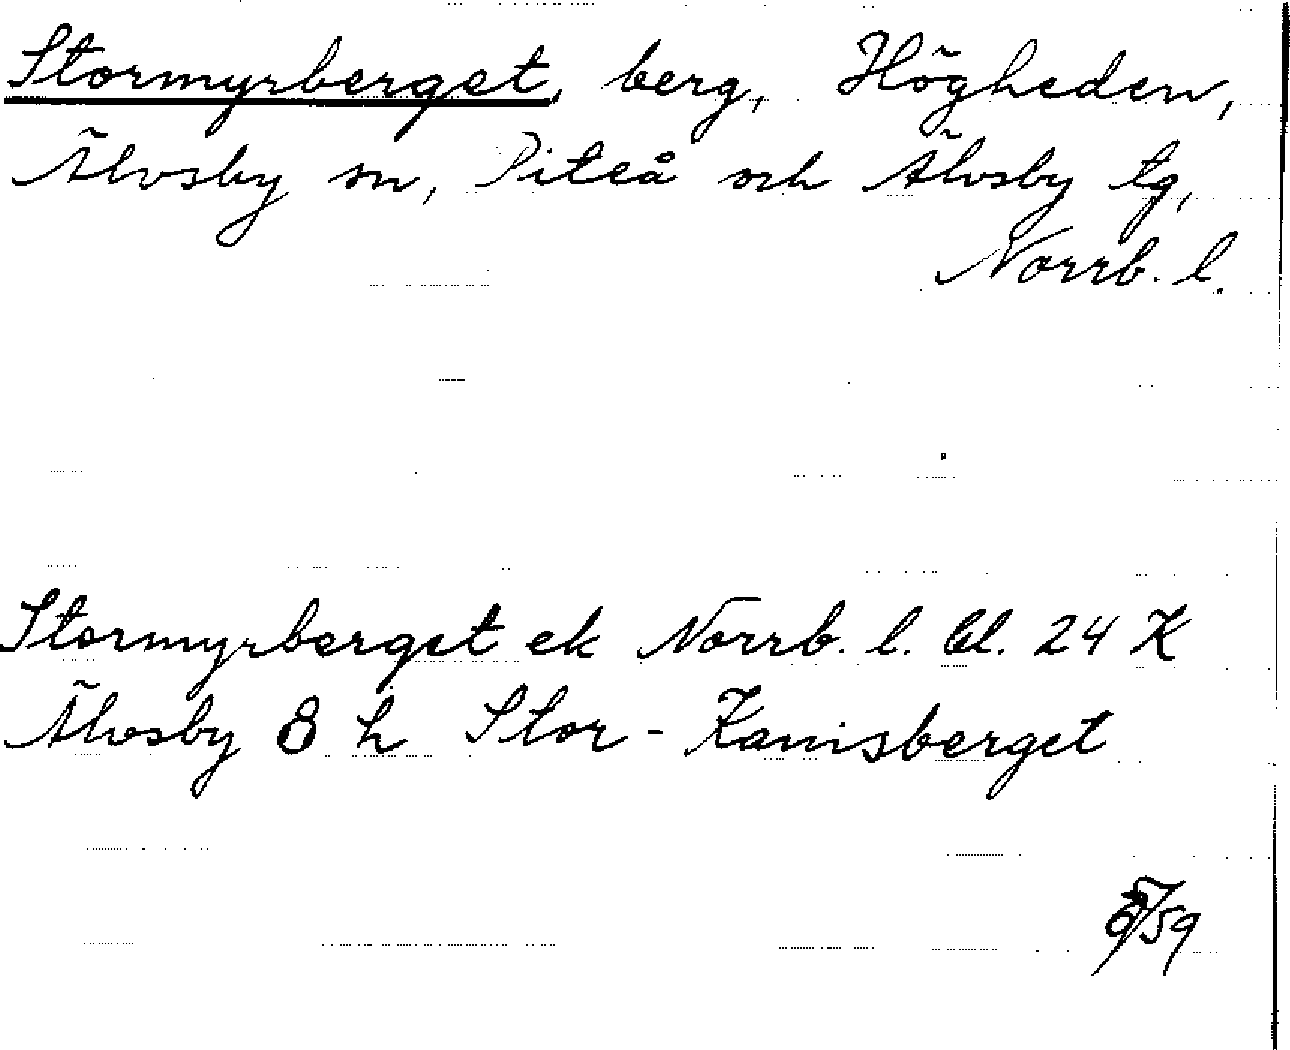 Stormyrberget, berg, Högheden,
Älvsby sn, Piteå och Älvsby tg,
Norrb. l.
Stormyrberget ek Norrb. l. bl. 24 K
Älvsby 8 h Stor-Kanisberget